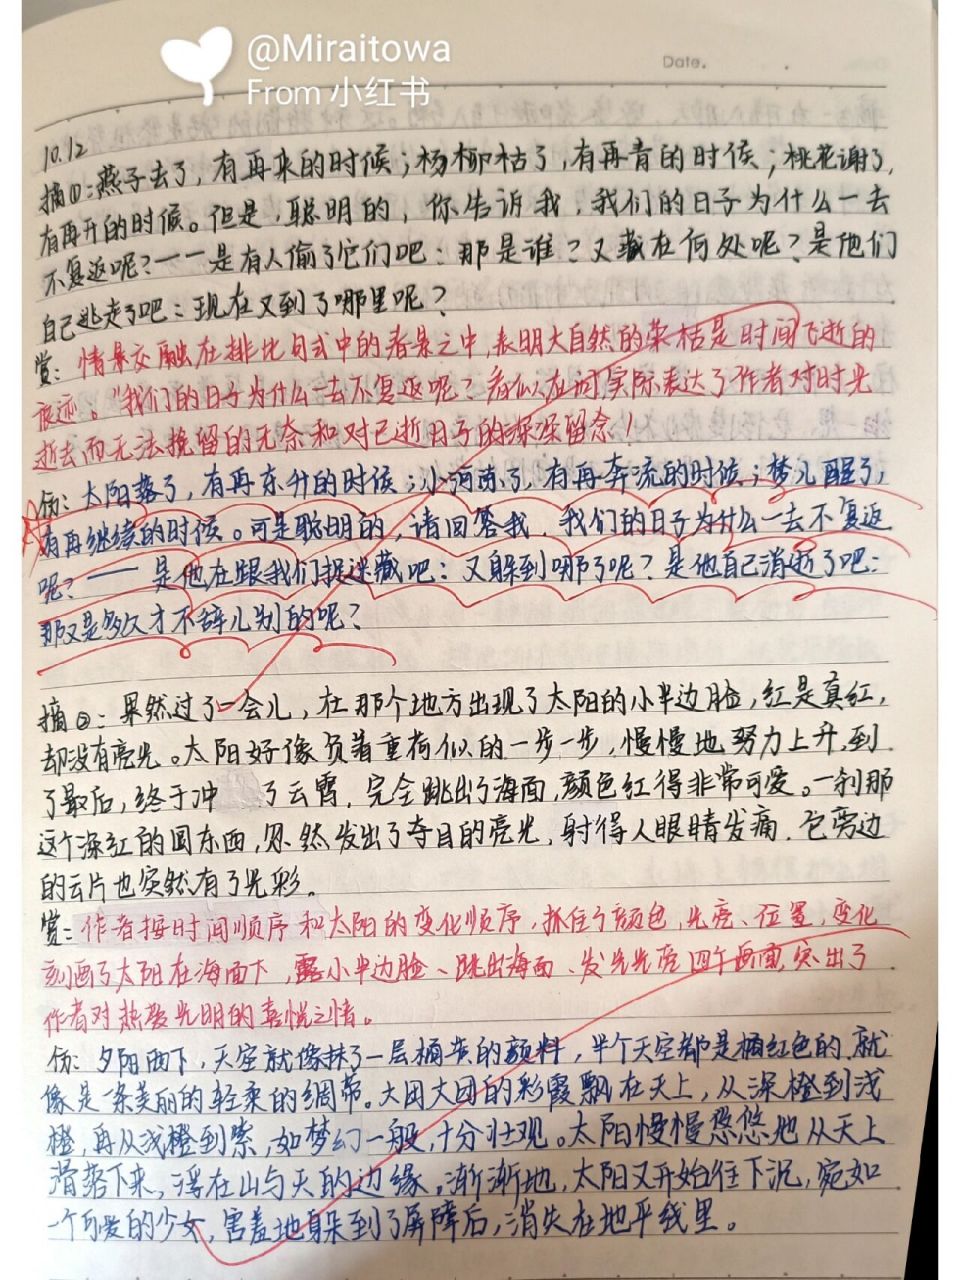 @Miraitowa
From 小红书
Date.
10.12
摘①:燕子去了,有再来的时候;杨柳枯了,有再青的时候;桃花谢了,
有再开的时候。但是,聪明的,你告诉我,我们的日子为什么一去
不复返呢?——是有人偷了它们吧:那是谁?又藏在何处呢?是他们
自己逃走了吧:现在又到了哪里呢?
赏:情景交融在排比句式中的春景之中,表明大自然的荣枯是时间飞逝的
痕迹。“我们的日子为什么一去不复返呢?看似在问实际表达了作者对时光
逝去而无法挽留的无奈和对已逝日子的深深留念!
仿:太阳落了,有再东升的时候;小河冻了,有再奔流的时候;梦儿醒了,
有再继续的时候。可是聪明的,请回答我,我们的日子为什么一去不复返
呢?——是他在跟我们捉迷藏吧:又躲到哪了呢?是他自己消逝了吧:
那又是多久才不辞儿别的呢?
摘②:果然过了一会儿,在那个地方出现了太阳的小半边脸,红是真红,
却没有亮光。太阳好像负着重荷似的一步一步,慢慢地努力上升,到
了最后,终于冲 了云霄,完全跳出了海面,颜色红得非常可爱。一刹那
这个深红的圆东西,忽然发出了夺目的亮光,射得人眼睛发痛,它旁边
的云片也突然有了光彩。
赏:作者按时间顺序和太阳的变化顺序,抓住了颜色,光亮、位置,变化
刻画了太阳在海面下,露小半边脸、跳出海面、发光光亮四个画面,突出了
作者对热爱光明的喜悦之情。
仿:夕阳西下,天空就像抹了一层橘黄的颜料,半个天空都是橘红色的,就
像是一条美丽的轻柔的绸带。大团大团的彩霞飘在天上,从深橙到浅
橙,再从浅橙到紫,如梦幻一般,十分壮观。太阳慢慢悠悠地从天上
滑落下来,浮在山与天的边缘。渐渐地,太阳又开始往下沉,宛如
一个可爱的少女,害羞地躲到了屏障后,消失在地平线里。